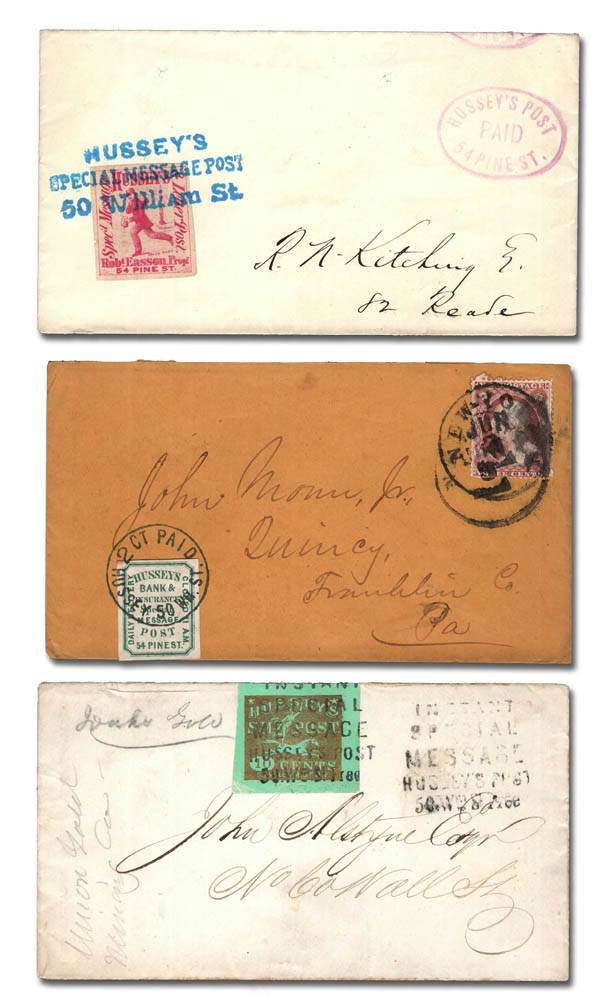 HUSSEY'S POST
PAID
54 PINE ST.
HUSSEY'S
SPECIAL MESSAGE POST
50 William St.
HUSSEY'S
Robt. Easson, Propt
54 PINE ST.
R. N. Kitching E.
82 Reade
NEW-YO
JUN
John Monn, Jr,
Quincy,
Franklin Co.
Pa
2 CT PAID
50 WM
HUSSEYS
BANK &
INSURANCE
SPECIAL
MESSAGE
POST
54 PINE ST.
DAILY DELIVERY
INSTANT
SPECIAL
MESSAGE
HUSSEY'S POST
50. Wm St. free
HUSSEY'S
POST
CENTS
INSTANT
SPECIAL
MESSAGE
HUSSEY'S POST
Gold
Union Gold
Mining Co
John Alstyne Esqr
No 60 Wall St